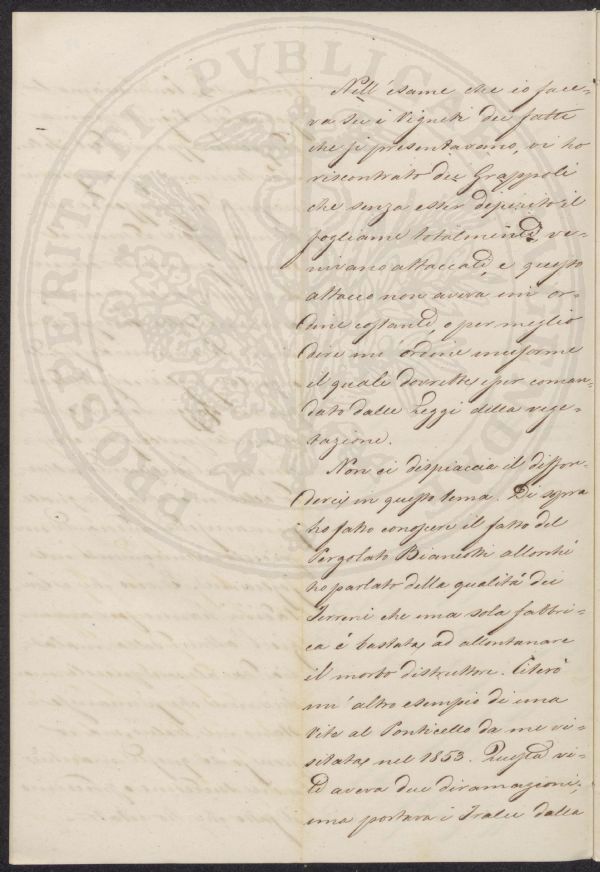 PROSPERITATI PVBLICAE AVGENDAE
Nell' esame che io face-
va su i Vigneti dei fatti
che si presentavano, vi ho
riscontrato dei Grappoli
che senza esser deperito il
fogliame totalmente, ve-
nivano attaccati, e questo
attacco non aveva un or-
dine costante, o per meglio
dire un' ordine uniforme
il quale dovrebbe esser coman-
dato dalle Leggi della vege-
tazione.
Non ci dispiaccia il diffon-
derci in questo tema. Di sopra
ho fatto conoscere il fatto del
Pergolato allorchè
ho parlato della qualità dei
Terreni che una sola fabbri-
ca è bastata ad allontanare
il morbo distruttore. Citerò
un' altro esempio di una
Vite al Ponticello da me vi-
sitata nel 1853. Questa vi-
te aveva due diramazioni,
una portava i Tralci dalla